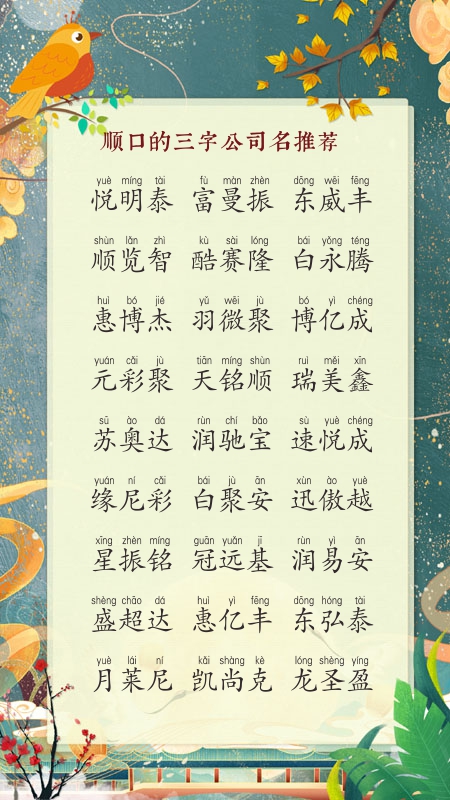 顺口的三字公司名推荐
yuè míng tài fù màn zhèn dōng wēi fēng
悦明泰 富曼振 东威丰
shùn lǎn zhì kù sài lóng bái yǒng téng
顺览智 酷赛隆 白永腾
huì bó jié yǔ wēi jù bó yì chéng
惠博杰 羽微聚 博亿成
yuán cǎi jù tiān míng shùn ruì měi xīn
元彩聚 天铭顺 瑞美鑫
sū ào dá rùn chí bǎo sù yuè chéng
苏奥达 润驰宝 速悦成
yuán ní cǎi bái jù ān xùn ào yuè
缘尼彩 白聚安 迅傲越
xīng zhèn míng guān yuǎn jī rùn yì ān
星振铭 冠远基 润易安
shèng chāo dá huì yì fēng dōng hóng tài
盛超达 惠亿丰 东弘泰
yuè lái ní kǎi shàng kè lóng shèng yíng
月莱尼 凯尚克 龙圣盈